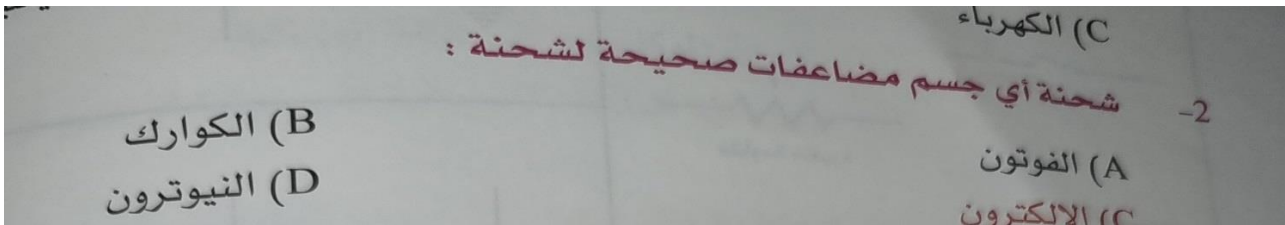 C) الكهرباء
2- شحنة أي جسم مضاعفات صحيحة لشحنة :
A) الفوتون
B) الكوارك
C) الإلكترون
D) النيوترون